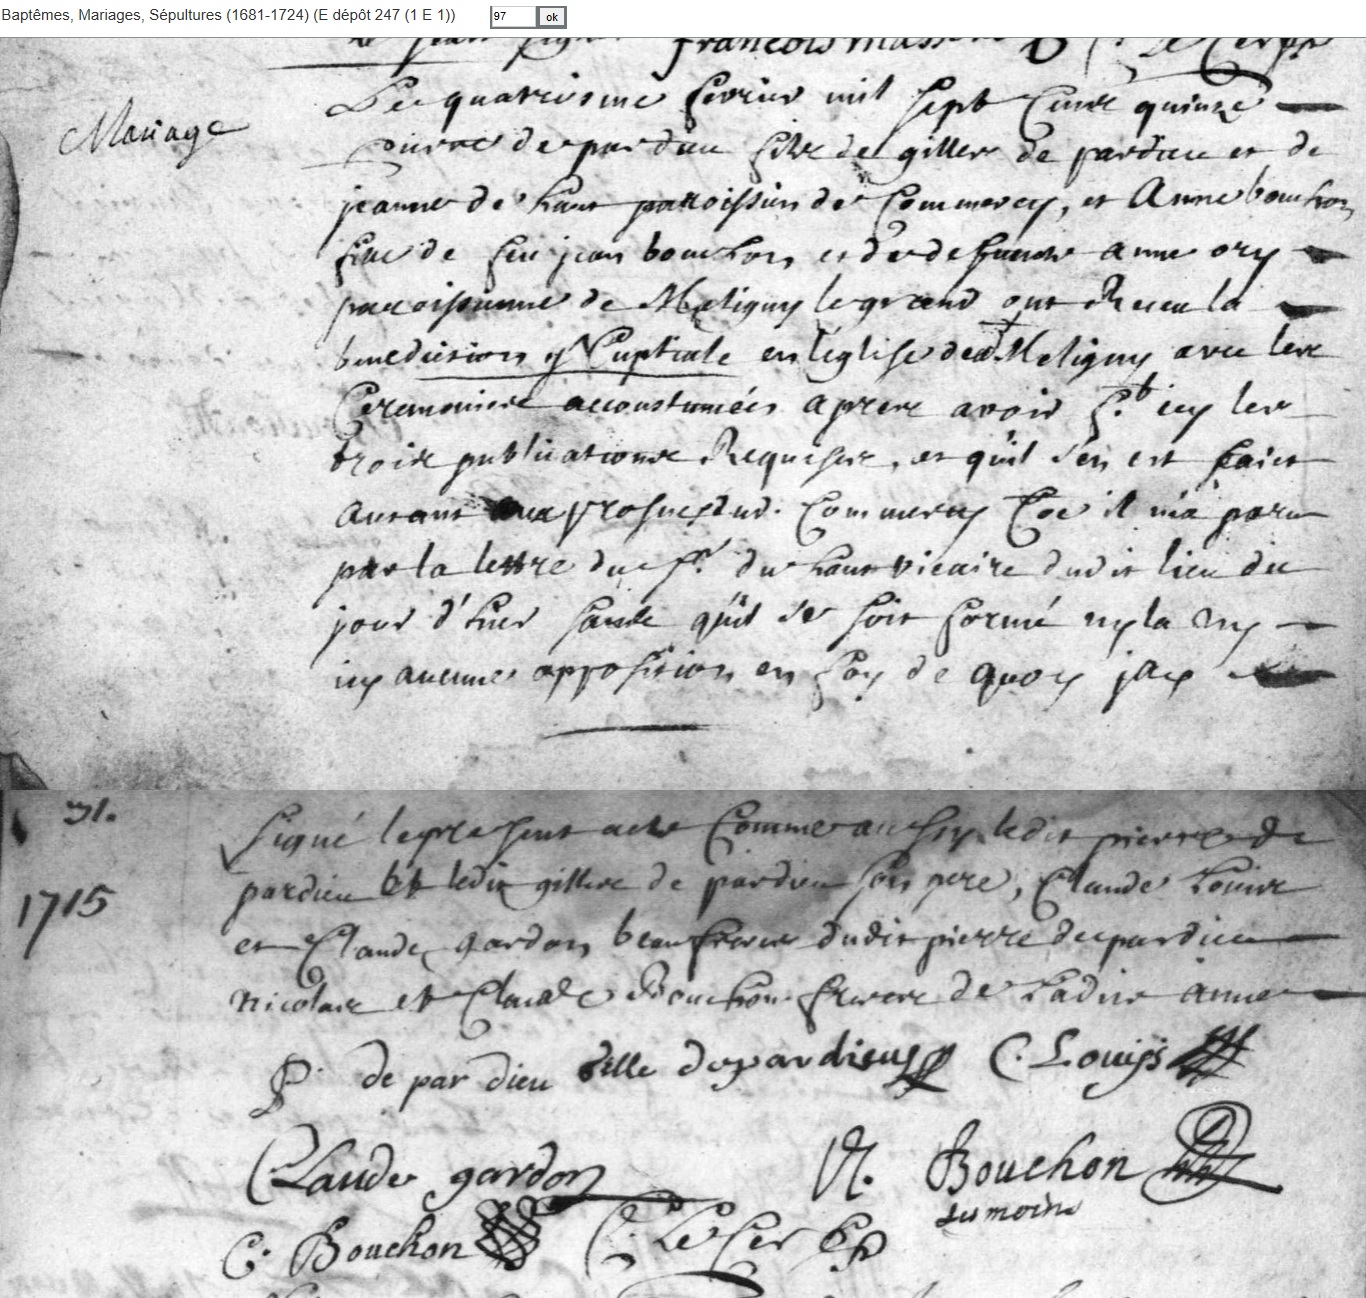 Baptêmes, Mariages, Sépultures (1681-1724) (E dépôt 247 (1 E 1)) 97 ok
françois
Mariage
Le quatriesme fevrier mil sept cent quinze
de pardieu fils de gilles de pardieu et de
jeanne de haut paroissien de Commercy, et Anne bouchon
fille de feu jean bouchon et de defuncte anne ory
paroissienne de Meligny le grand ont Receu la
benediction Nuptiale en l'église dud Meligny avec les
Ceremonies accoustumées apres avoir icy les
trois publications Requises, et qu'il s'en est faict
autant aux prosnes dud. Commercy Coe il m'a paru
par la lettre du sr. du haut vicaire dudit lieu du
jour d'hier sans qu'il se soit formé ny la ny
icy aucune opposition en foy de quoy jay
31.
1715
signé le present acte Comme aussy ledit pierre de
pardieu et ledit gilles de pardieu son pere, Claude Louis
et Claude gardon beaufreres dudit pierre de pardieu
Nicolas et Claude Bouchon freres de Ladite anne
P. de par dieu Gille depardieu C. Louis
Claude gardon N. Bouchon
tesmoins
C. Bouchon